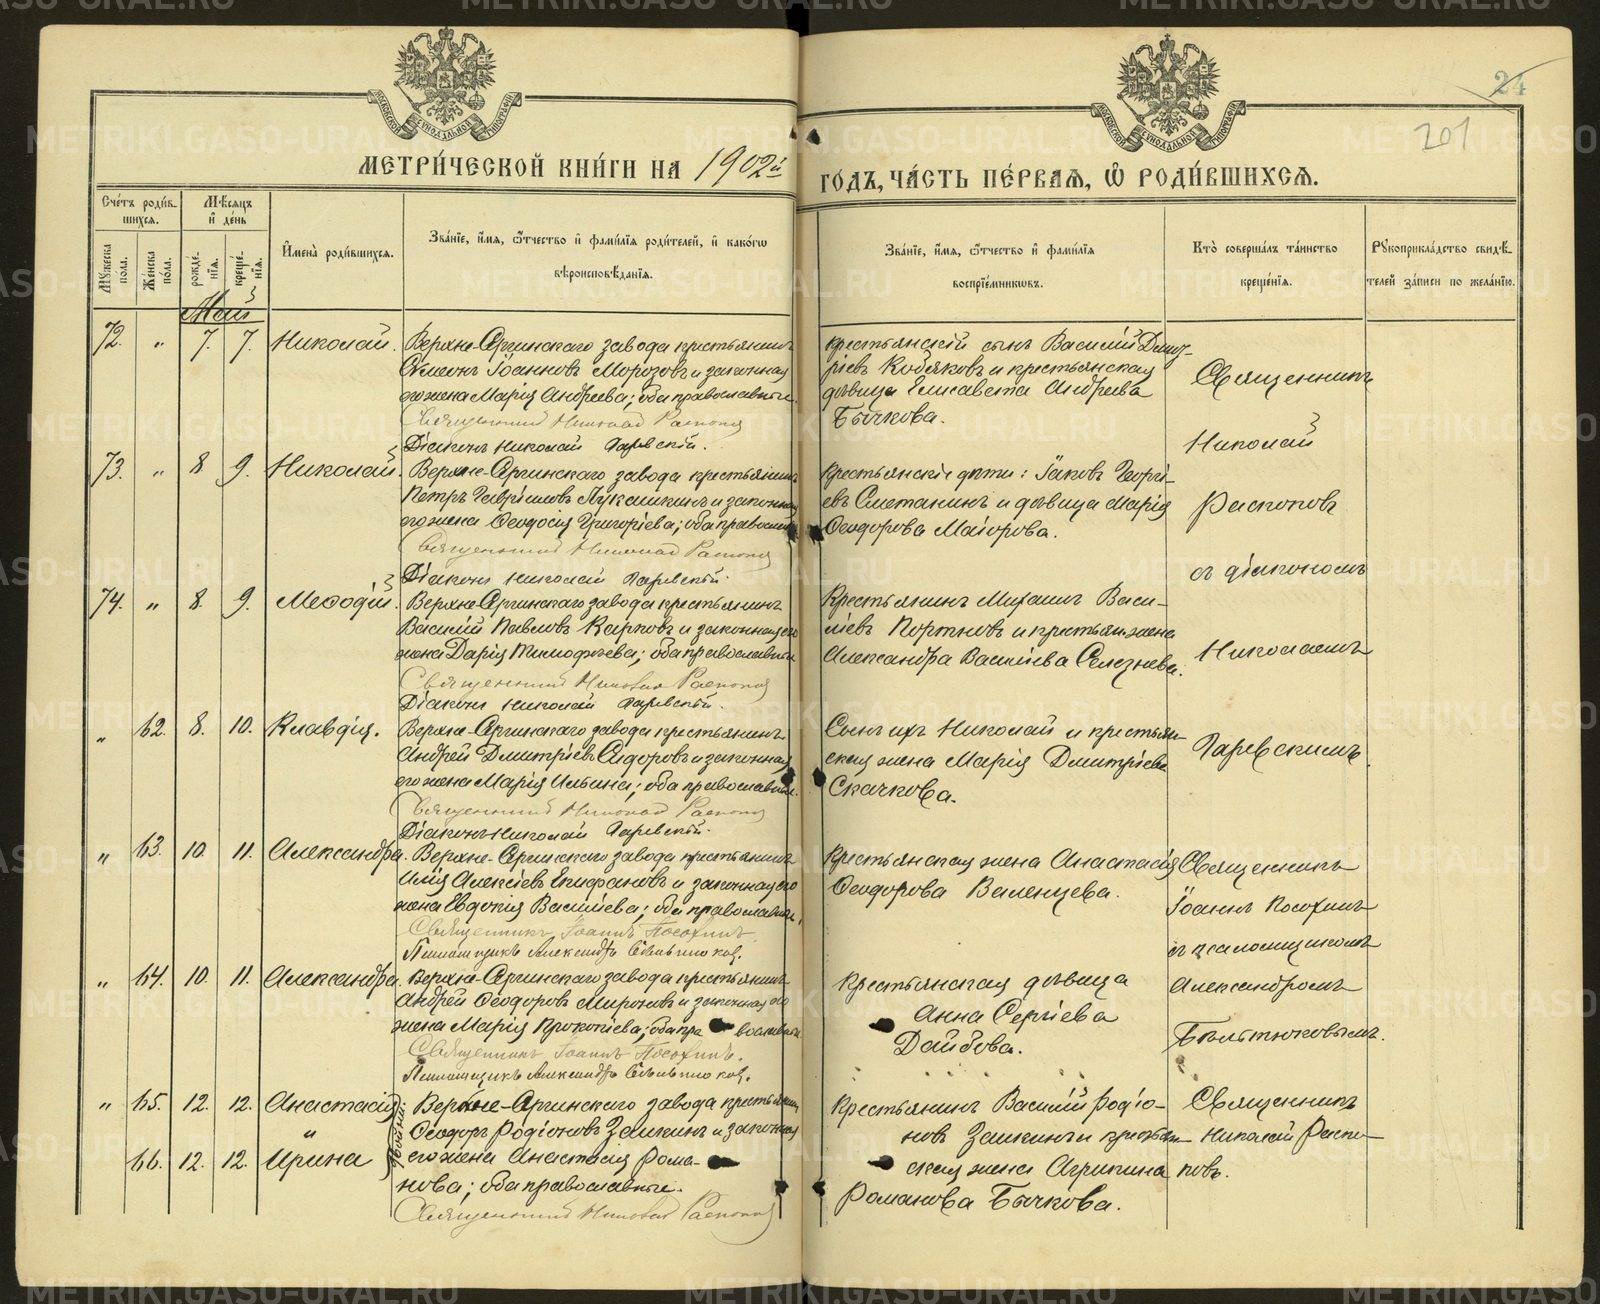 24
201
МЕТРИ́ЧЕСКОЙ КНИ́ГИ НА 1902й
ГОДЪ, ЧА́СТЬ ПЕ́РВАЯ, Ѡ РОДИ́ВШИХСЯ.
Сче́тъ роди́в-
шихся.
Мѣсяцъ
и де́нь
Му́жеска
пола.
Же́нска
по́ла.
рожде-
нїя.
креще-
нїя.
И҆мена̀ роди́вшихся.
Зва́нїе, и҆́мя, ѻ҆́тчество и҆ фами́лїя роди́телей, и҆ како́гѡ
вѣроисповѣ́данїя.
Зва́нїе, и҆́мя, ѻ҆́тчество и҆ фами́лїя
воспрїе́мниковъ.
Кто̀ соверша́лъ та́инство
креще́нїя.
Рꙋкоприкла́дство свидѣ́-
телей за́писи по жела́нїю.
Май
72. „ 7. 7. Николай.
Верхне-Сергинскаго завода крестьянинъ
Симеонъ Іоанновъ Морозовъ и законная
его жена Марія Андреева; оба православные.
Священникъ Николай Распоповъ
Діаконъ Николай Гаревскій.
крестьянскій сынъ Василій Димит-
ріевъ Кобяковъ и крестьянская
дѣвица Елисавета Андреева
Бычкова.
73. „ 8 9. Николай.
Верхне-Сергинскаго завода крестьянинъ
Петръ Гавріиловъ Лукашкинъ и законная
его жена Ѳеодосія Григоріева; оба православные
Священникъ Николай Распоповъ
Діаконъ Николай Гаревскій.
Крестьянскіе дѣти: Іаковъ Георгі-
евъ Сметанинъ и дѣвица Марія
Ѳеодорова Маіорова.
74. „ 8. 9. Меѳодій.
Верхне-Сергинскаго завода крестьянинъ
Василій Павловъ Каірковъ и законная его
жена Дарія Тимофѣева; оба православные
Священникъ Николай Распоповъ
Діаконъ Николай Гаревскій.
Крестьянинъ Михаилъ Васи-
ліевъ Портновъ и крестьян. жена
Александра Василіева Селезнева.
Священникъ
Николай
Распоповъ
съ діакономъ
Николаемъ
Гаревскимъ.
„ 62. 8. 10. Клавдія.
Верхне-Сергинскаго завода крестьянинъ
Андрей Дмитріевъ Сидоровъ и законная
его жена Марія Ильина; оба православные.
Священникъ Николай Распоповъ
Діаконъ Николай Гаревскій.
Сынъ ихъ Николай и крестьян-
ская жена Марія Дмитріева
Скачкова.
„ 63. 10. 11. Александра.
Верхне-Сергинскаго завода крестьянинъ
Илія Алексіевъ Епифановъ и законная его
жена Евдокія Василіева; оба православные.
Священникъ Іоаннъ Посохинъ.
Псаломщикъ Александръ Бѣльтюковъ.
Крестьянская жена Анастасія
Ѳеодорова Валенцева.
„ 64. 10. 11. Александра.
Верхне-Сергинскаго завода крестьянинъ
Андрей Ѳеодоровъ Мироновъ и законная его
жена Марія Прокопіева; оба православные
Священникъ Іоаннъ Посохинъ.
Псаломщикъ Александръ Бѣльтюковъ.
Крестьянская дѣвица
Анна Сергіева
Дайбова.
Священникъ
Іоаннъ Посохинъ
съ псаломщикомъ
Александромъ
Бѣльтюковымъ.
„ 65. 12. 12. Анастасія
„
66. 12. 12. Ирина
двойни
Верхне-Сергинскаго завода крестьянинъ
Ѳеодоръ Родіоновъ Заикинъ и законная
его жена Анастасія Рома-
нова; оба православные.
Священникъ Николай Распоповъ
Крестьянинъ Василій Родіо-
новъ Заикинъ и крестьян-
ская жена Агрипина
Романова Бычкова.
Священникъ
Николай Распо-
повъ.